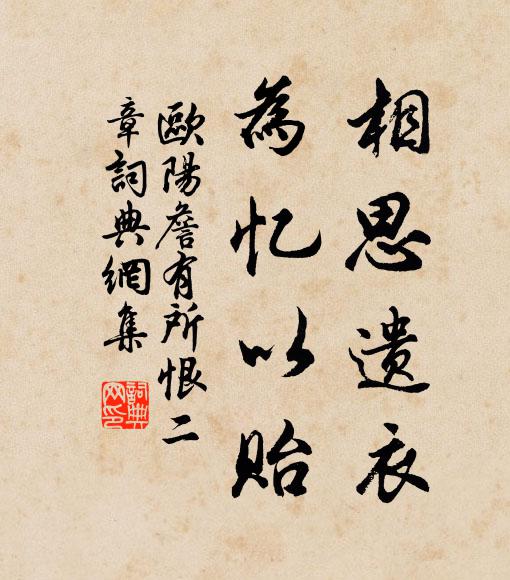 相思遺衣
為忆以貽
歐陽詹有所恨二
章詞典網集
詞典
网印